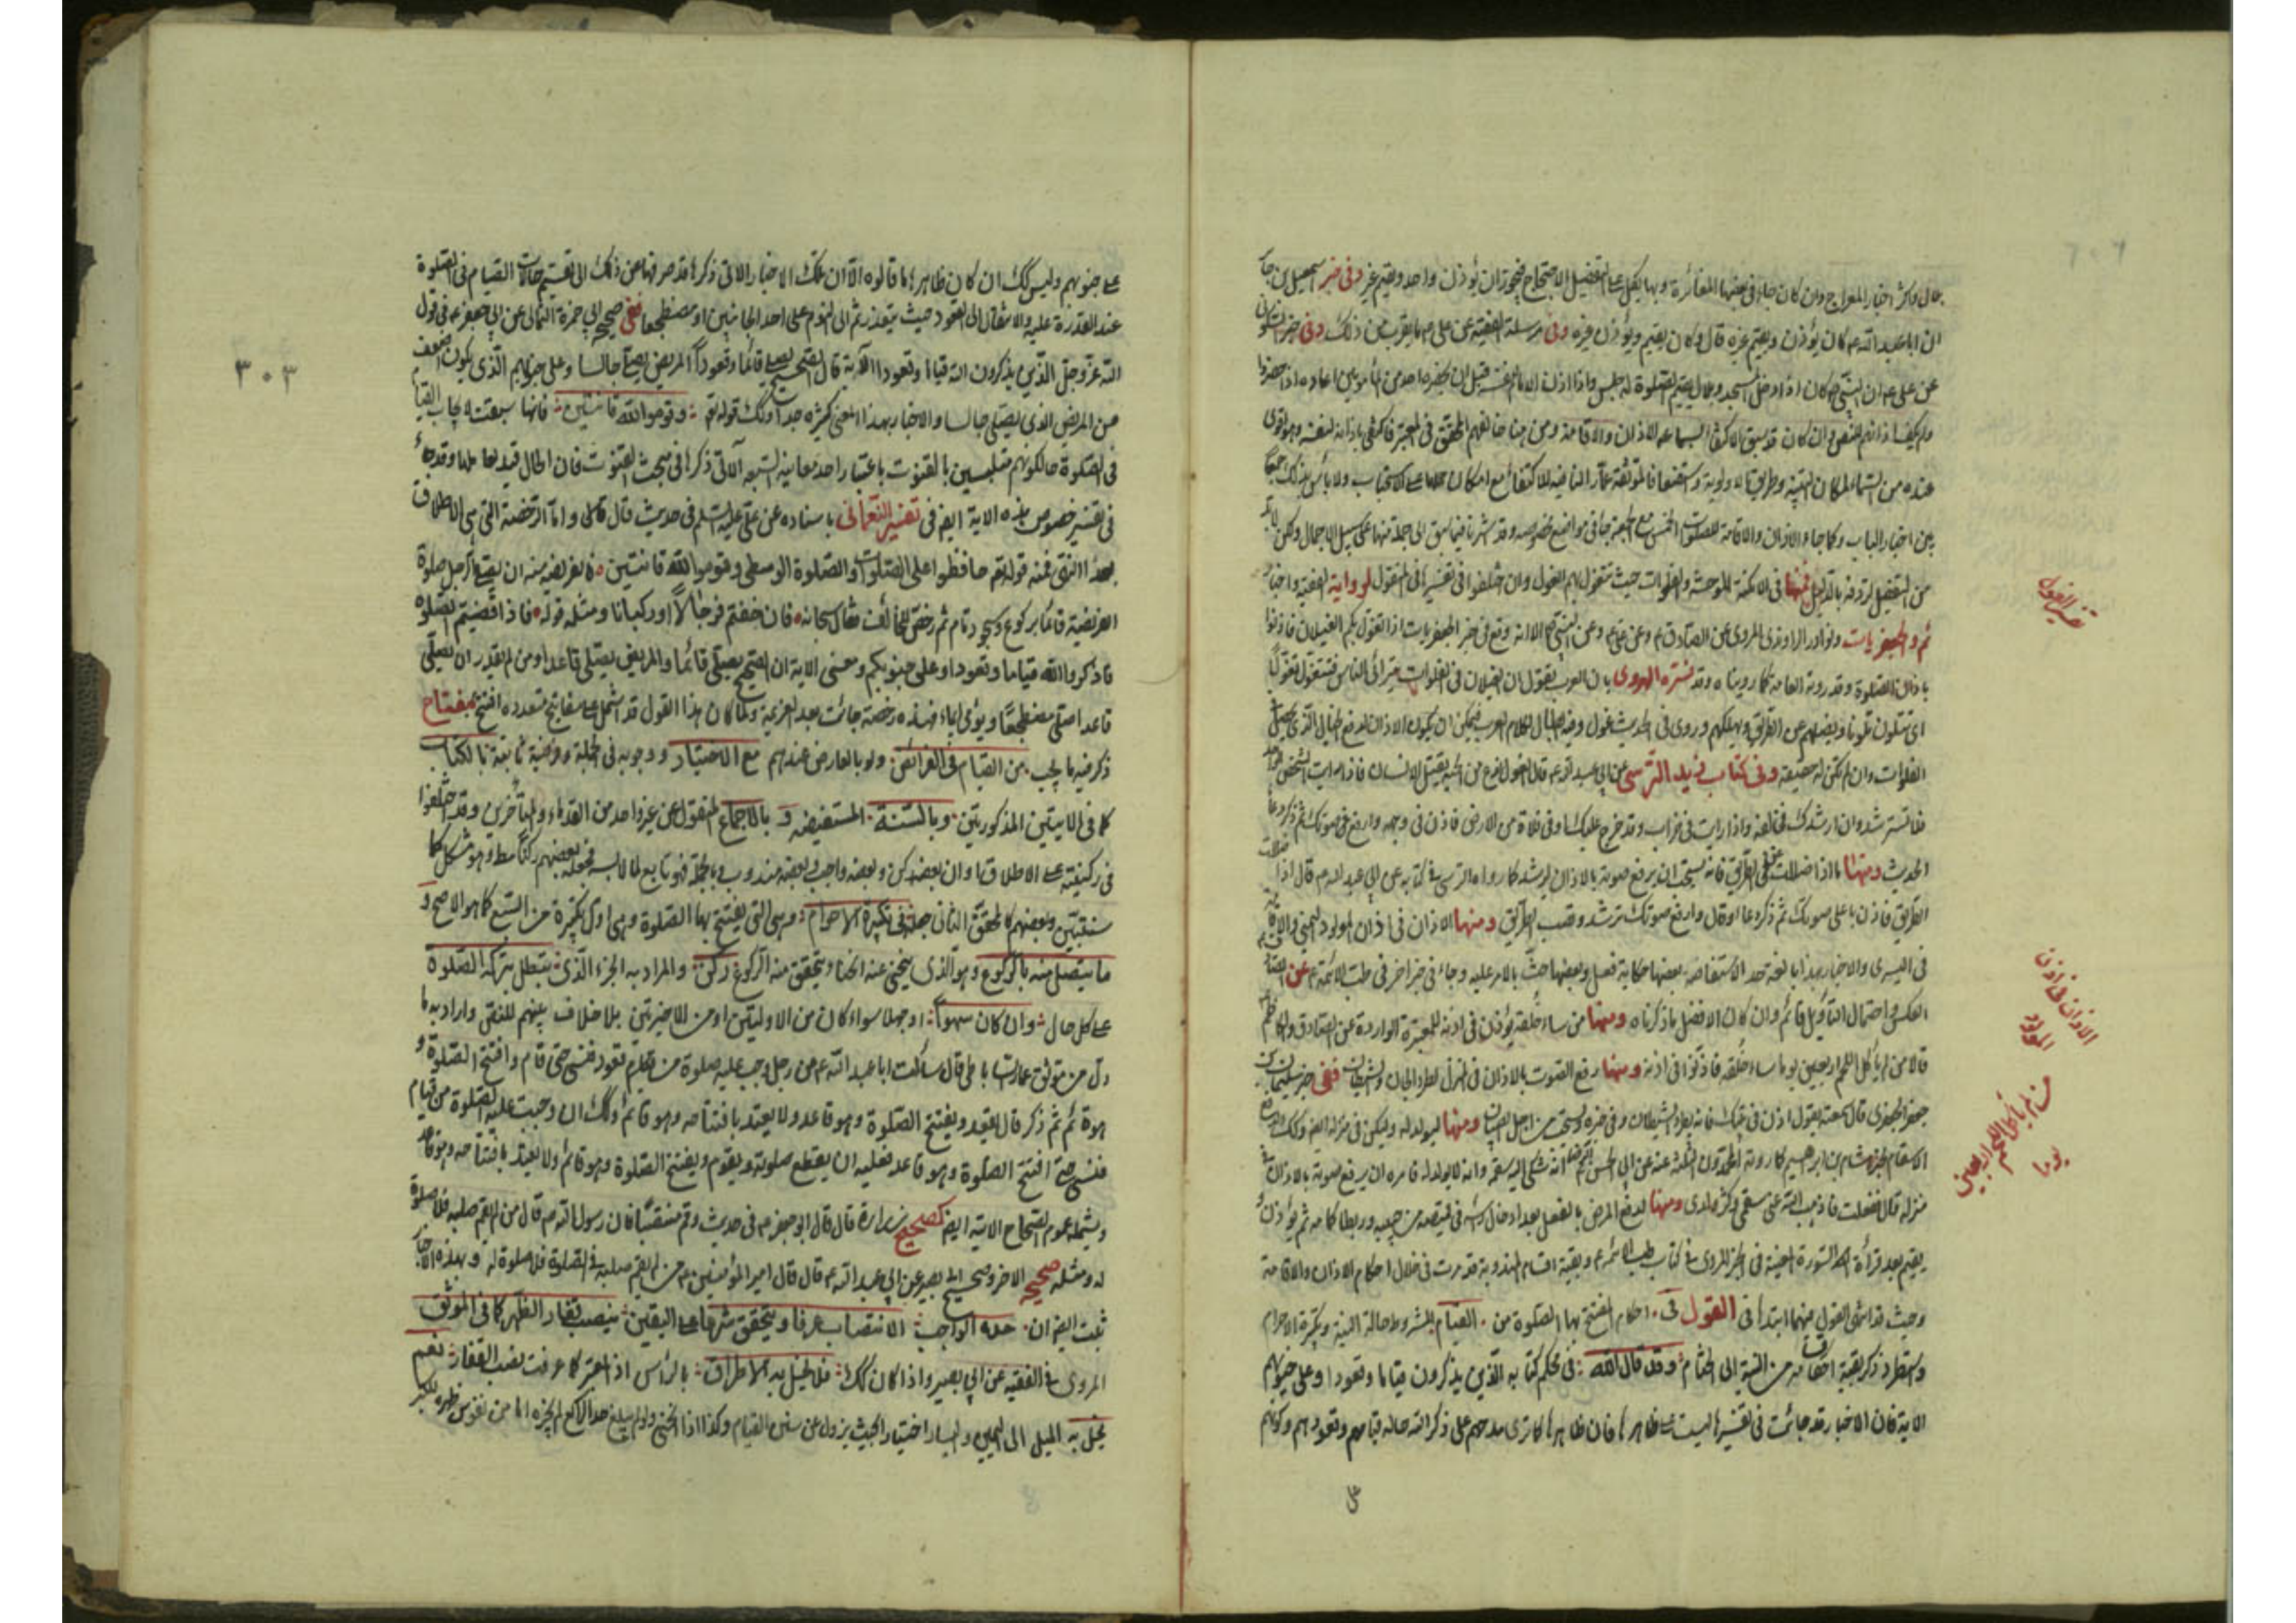 حال واكثر اخبار المعراج وان كان جاء في بعضها المغائرة وبها يكمل التفضيل الاحتجاج فيجوز ان يؤذن واحد ويقيم غيره وفي خبر اسمعيل بن جابر
ان ابا عبد الله ع كان يؤذن ويقيم غيره قال وكان يقيم ويؤذن غيره وفي مرسلة الفقيه عن علي ع ما يقرب من ذلك وفي خبر السكوني
عن علي ع ان النبي ص كان اذا دخل المسجد وبلال يقيم الصلوة جلس واذا اذن
وان كان قد سبق الاكتفاء بسماعه الاذان والاقامة ومن هنا خالفهم المحقق في المعتبر فاكتفى باذانه لنفسه وهو اقوى
بين اخبار الباب وكما جاء الاذان والاقامة للصلوات الخمس مع الجمعة جاء في مواضع مخصوصة وقد اشرنا فيما سبق الى جملة منها على سبيل الاجمال ولكن لابد
من التفصيل لمزيد فمنها في الامكنة الموحشة والفلوات حيث تتغول بهم الغول وان اختلفوا في تفسيرها المنقول لرواية الفقيه واخبار
ثم والجعفريات ونوادر الراوندي المروي عن الصادق ع وعن علي ع وعن النبي ص الا انه وقع في خبر الجعفريات اذا تغولت بكم الغيلان فاذنوا
باذان الصلوة وقد روته العامة كما رويناه وقد فسره الهروي بان العرب يقول ان الغيلان في الفلوات تترائى للناس فتتغول تغولا
اي تتلون تلونا وتضلهم عن الطريق وتهلكهم وروي في الحديث لا غول وفيه ابطال لكلام العرب فيمكن ان يكون الاذان لدفع الخيال الذي يحصل
الفلوات وان لم تكن له حقيقة وفي كتاب زيد النرسي عن ابي عبد الله ع قال الغول نوع من الجن يغتال الانسان فاذا رايت الشخص الواحد
فلا تسترشده وان ارشدك فخالفه واذا رايت في خراب وقد خرج عليك او في فلاة من الارض فاذن في وجهه وارفع صوتك ثم ذكر دعا
الحديث ومنها ما اذا ضللت عن الطريق فانه يستحب ان يرفع صوته بالاذان ليرشد كما رواه النرسي في كتابه عن ابي عبد الله ع قال اذا ضللت
الطريق فاذن باعلى صوتك ثم ذكر دعا وقال وارفع صوتك ترشد وتصب الطريق ومنها الاذان في اذان المولود اليمنى والاقامة
في اليسرى والاخبار بهذا بالغة حد الاستفاضة بعضها حكاية فعل وبعضها حث بالامر عليه وجاء في خبر اخر في طب الائمة ع عن الصادق
العكس واحتمال التاويل قائم وان كان الافضل ما ذكرناه ومنها من ساء خلقه يؤذن في اذنه للمعتبرة الواردة عن الصادق والكاظم
قالا من لم ياكل اللحم اربعين يوما ساء خلقه فاذنوا في اذنه ومنها رفع الصوت بالاذان في المنزل لطرد الجان والشيطان ففي خبر سليمان بن
جعفر الجعفري قال سمعته يقول اذن في بيتك فانه يطرد الشيطان ويستحب من اجل الصبيان ومنها
هشام بن ابراهيم كما روته المحمدون الثلثة عنه عن ابي الحسن الرضا انه شكى اليه سقمه وانه لا يولد له فامره ان يرفع صوته بالاذان في
منزله قال ففعلت فاذهب الله عني سقمي وكثر ولدي ومنها لدفع المرض بالفعل بعد ادخال راسه في قميصه من جيبه ثم يؤذن
يقيم بعد قرأة السورة المعينة في الخبر المروي في كتاب طب الائمة ع وبقية اقسام المندوبة قد مرت في خلال احكام الاذان والاقامة
وحيث قد انتهى القول منهما ابتدأ في القول في احكام المفتتح بها الصلوة من القيام المشروط حالة النية وتكبيرة الاحرام
وقد قال الله في محكم كتابه الذين يذكرون قياما وقعودا وعلى جنوبهم
الاية فان الاخبار قد جائت في تفسيرها ليست على ظاهرها فان ظاهرها كما ترى مدحهم على ذكر الله حالة قيامهم وقعودهم وكونهم
على
تفسير الغول
الاذان في اذن المولود
من لم ياكل اللحم اربعين يوما
٣٠٣
على جنوبهم وليس كك ان كان ظاهرها ما قالوه الا ان تلك الاخبار الاتي ذكرها قد صرفتها عن ذلك الى تقسيم حالات القيام في الصلوة
عند القدرة عليه والانتقال الى القعود حيث يتعذر ثم الى النوم على احد الجانبين او مضطجعا ففي صحيح ابي حمزة الثمالي عن ابي جعفر ع في قول
الله عز وجل الذين يذكرون الله قياما وقعودا الآية قال الصحيح يصلي قائما وقعودا المريض يصلي جالسا وعلى جنوبهم الذي يكون اضعف
من المريض الذي يصلي جالسا والاخبار بهذا المعنى كثيرة جدا وكك قوله تعالى وقوموا لله قانتين فانها سيقت لايجاب القيام
في الصلوة حال كونهم متلبسين بالقنوت باعتبار احد معانيه السبعة الآتي ذكرها في مبحث القنوت فان الحال قيد لعاملها وقد جاء
في تفسير خصوص هذه الاية ايضا في تفسير النعماني باسناده عن علي عليه السلم في حديث قال واما الرخصة التي هي الاطلاق
بعد النهي فمنه قوله تعالى حافظوا على الصلوات والصلوة الوسطى وقوموا لله قانتين فالفريضة منه ان يصلي الرجل صلوة
الفريضة قائما بركوع وسجود تام ثم رخص للخائف فقال سبحانه فان خفتم فرجالا او ركبانا ومثله قوله فاذا قضيتم الصلوة
فاذكروا الله قياما وقعودا وعلى جنوبكم ومعنى الاية ان الصحيح يصلي قائما والمريض يصلي قاعدا ومن لم يقدر ان يصلي
قاعدا صلى مضطجعا ويؤمي ايماء فهذه رخصة جائت بعد العزيمة ولما كان هذا القول قد اشتمل على مفاتيح متعددة افتتح بمفتاح
ذكر فيه ما يجب من القيام في الفرائض ولو بالعارض عندهم مع الاختيار ووجوبه في الجملة وفرضيته ثابتة بالكتاب
كما في الايتين المذكورتين وبالسنة المستفيضة و بالاجماع المنقول عن غير واحد من القدماء والمتأخرين وقد اختلفوا
في ركنيته على الاطلاق او ان بعضه ركن وبعضه واجب وبعضه مندوب وبالجملة فهو تابع لما لابسه فجعله بعضهم ركنا مطلقا وهو مشكل كما
ستتبين وبعضهم كالمحقق الثاني جعله في تكبيرة الاحرام وهي التي يفتتح بها الصلوة وهي اول تكبيرة من السبع كما هو الاصح و
ما يتصل منه بالركوع وهو الذي ينحني عنه انحناء ويتحقق منه الركوع ركن والمراد به الجزء الذي تبطل بتركه الصلوة
على كل حال وان كان سهوا او جهلا سواء كان من الاوليتين او من الاخيرتين بلا خلاف بينهم للنص واراد به ما
دل من موثق عمار الساباطي قال سألت ابا عبد الله ع عن رجل وجب عليه صلوة من قعود فنسي حتى قام وافتتح الصلوة و
هو قائم ثم ذكر قال يقعد ويفتتح الصلوة وهو قاعد ولا يعتد بافتتاحه وهو قائم وكك ان وجبت عليه الصلوة من قيام
فنسي حتى افتتح الصلوة وهو قاعد فعليه ان يقطع صلوته ويقوم ويفتتح الصلوة وهو قائم ولا يعتد بافتتاحه وهو قاعد
ويشمله عموم الصحاح الاتية ايضا كصحيح زرارة قال قال ابو جعفر ع في حديث وقم منتصبا فان رسول الله ص قال من لم يقم صلبه فلا صلوة
له ومثله صحيحه الاخر وصحيح ابي بصير عن ابي عبد الله ع قال قال امير المؤمنين ع من لم يقم صلبه في الصلوة فلا صلوة له وبهذه الاخبار
ثبت ايضا ان حده الواجب الانتصاب عرفا ويتحقق شرعا على اليقين بنصب فقار الظهر كما في الموثق
المروي في الفقيه عن ابي بصير واذا كان كك فلا يخل به الاطراق بالرأس اذ المعتبر كما عرفت نصب الفقار نعم
يخل به الميل الى اليمين واليسار اختيارا بحيث يزول عن سنن القيام وكذا اذا انحنى ولو لم يبلغ حد الراكع لم يجزه اما من تقوس ظهره لكبر